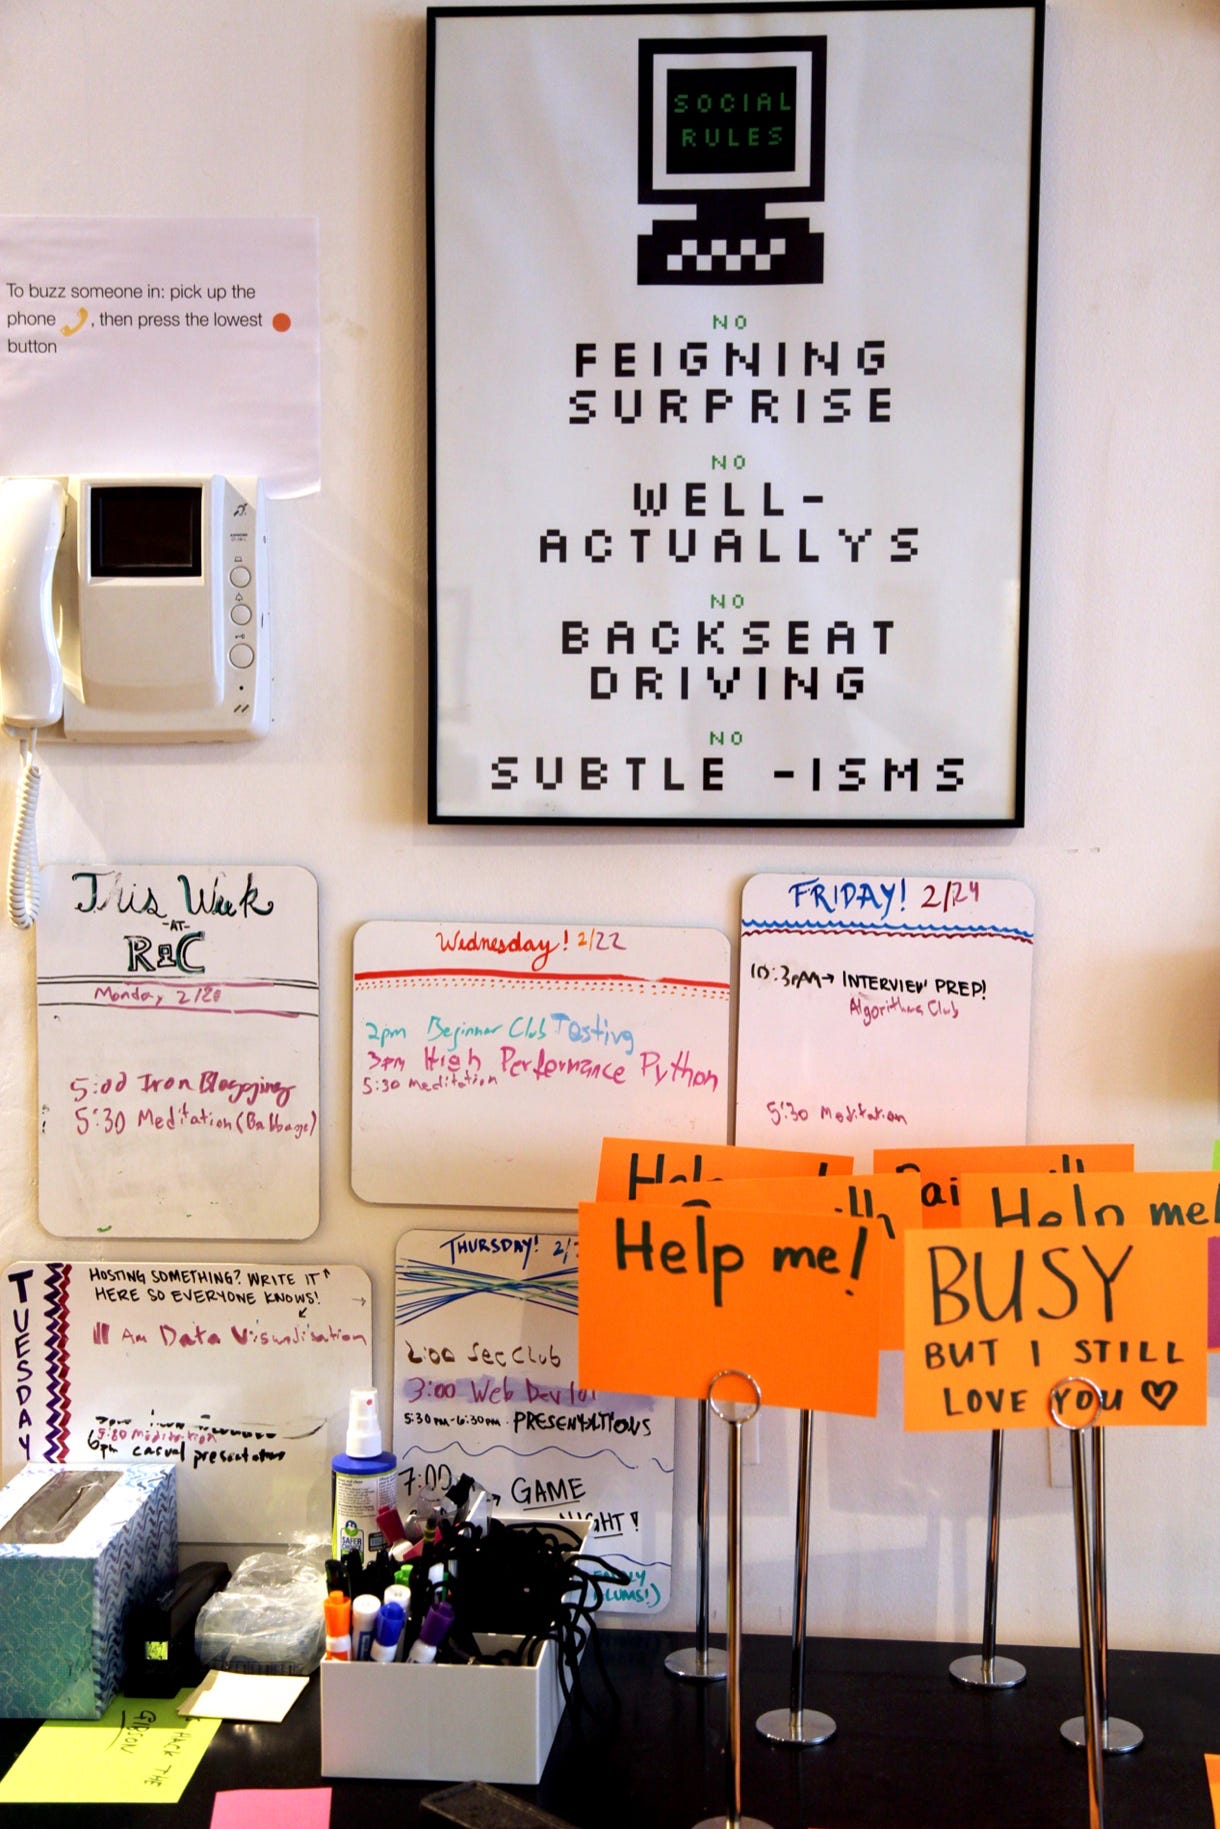 SOCIAL
RULES
NO
FEIGNING
SURPRISE
NO
WELL-
ACTUALLYS
NO
BACKSEAT
DRIVING
NO
SUBTLE -ISMS
To buzz someone in: pick up the
phone , then press the lowest
button
This Week
-AT-
R&C
Monday 2/20
5:00 Iron Blogging
5:30 Meditation (Babbage)
Wednesday! 2/22
2pm Beginner Club Testing
3pm High Performance Python
5:30 meditation
FRIDAY! 2/24
INTERVIEW PREP!
Algorithms Club
5:30 Meditation
TUESDAY
HOSTING SOMETHING? WRITE IT
HERE SO EVERYONE KNOWS!
11 Am Data Visualisation
5:30 Meditation
6pm casual presentations
THURSDAY!
2:00 Sec Club
3:00 Web Dev
5:30PM-6:30PM PRESENTATIONS
7:00
GAME
NIGHT!
Help me!
Help me!
BUSY
BUT I STILL
LOVE YOU
HACK THE
GIBSON